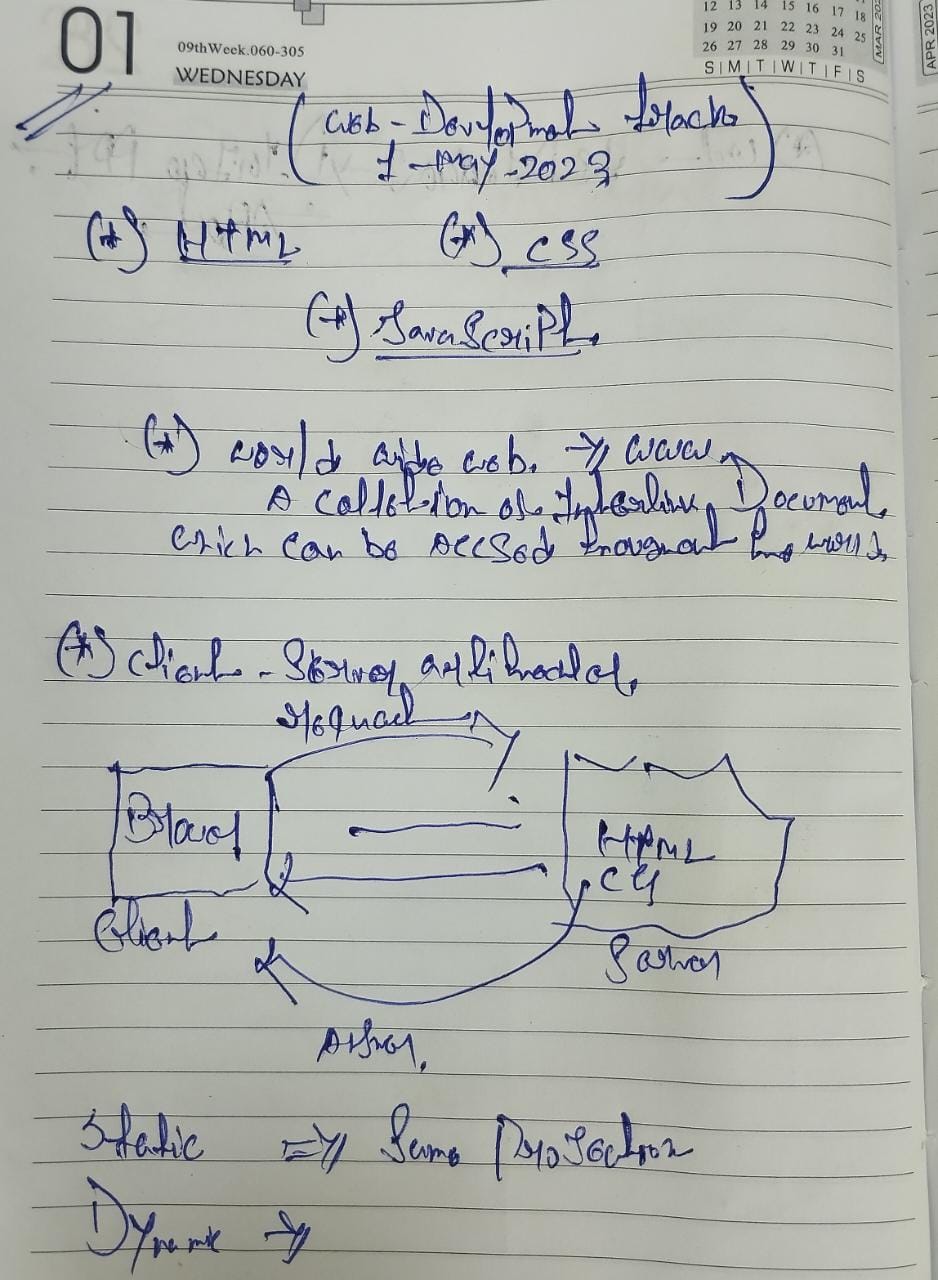 01
09thWeek.060-305
WEDNESDAY
12 13 14 15 16 17 18
19 20 21 22 23 24 25
26 27 28 29 30 31
S M T W T F S
MAR 202
APR 2023
Web-Development
1-May-2023
(*) HTML (*) CSS
(*) JavaScript
(*) world wide web. => www
A colletion of Interlink Document
which can be accsed throughout the world
(*) client - Server
request
Browser
HTML
CSS
Client
Server
Static => Same
Dynamic =>